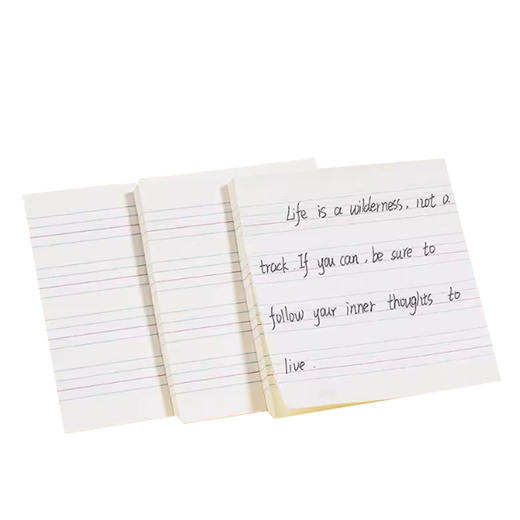 Life is a wilderness, not a
track. If you can, be sure to
follow your inner thoughts to
live.